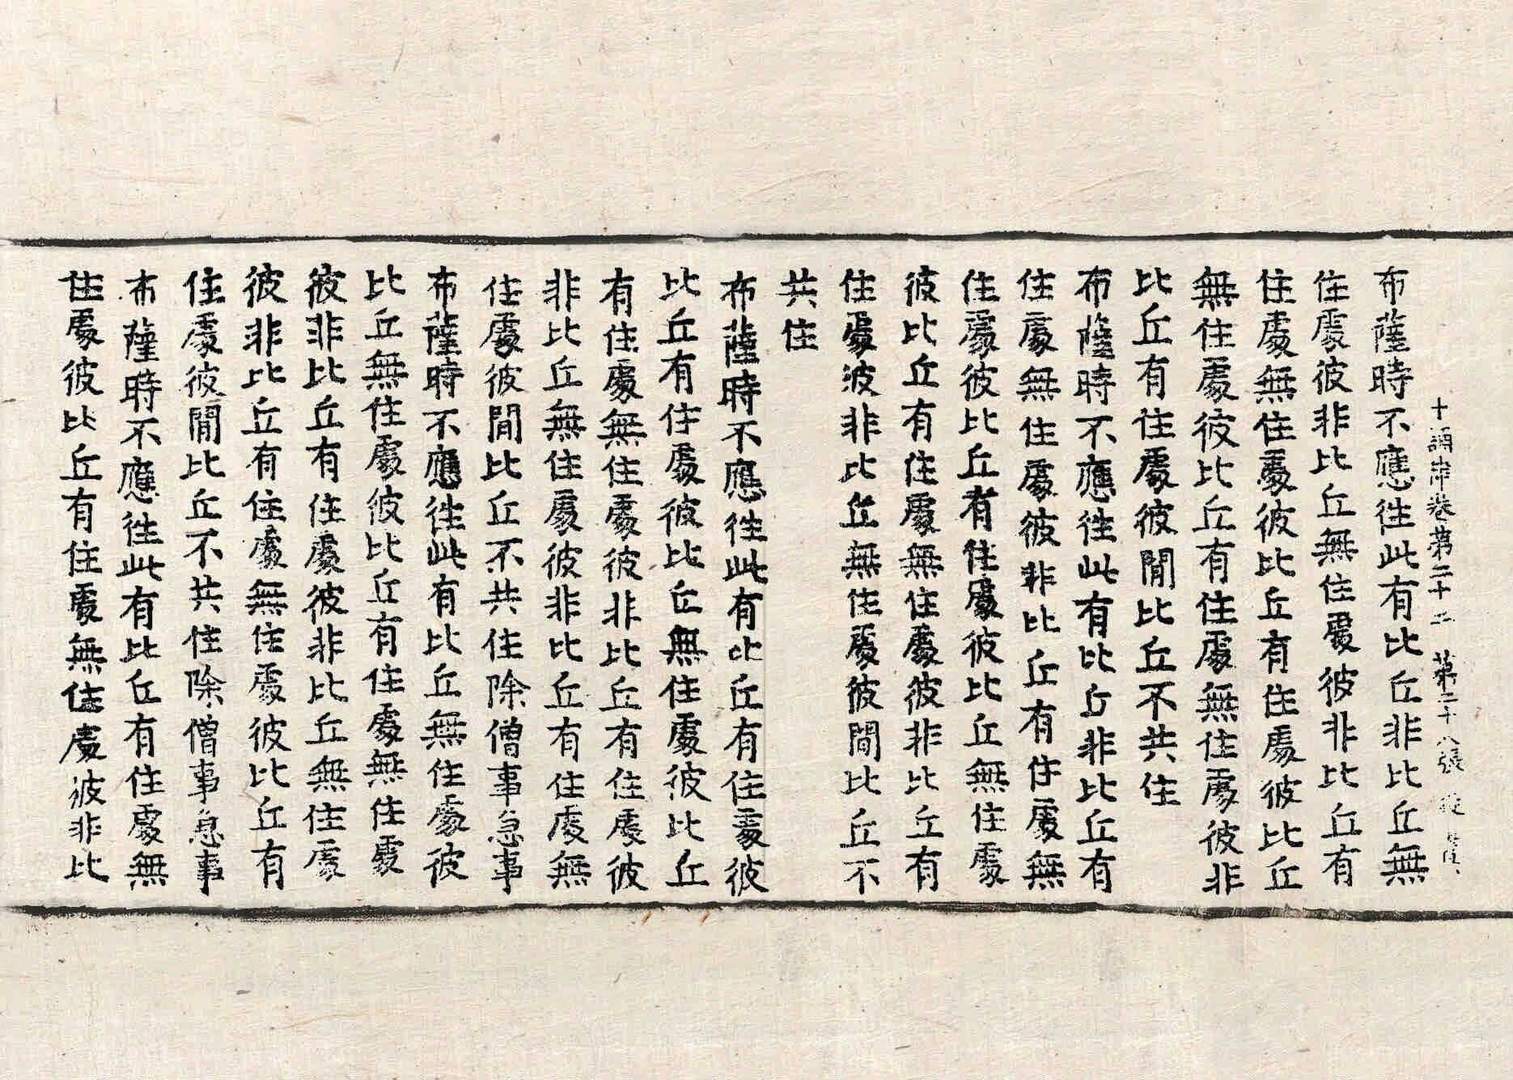 十誦律卷第二十二 第二十八張
布薩時不應徃此有比丘非比丘無
住處彼非比丘無住處彼非比丘有
住處無住處彼比丘有住處彼比丘
無住處彼比丘有住處無住處彼非
比丘有住處彼閒比丘不共住
布薩時不應徃此有比丘非比丘有
住處無住處彼非比丘有住處無
住處彼比丘有住處彼比丘無住處
彼比丘有住處無住處彼非比丘有
住處彼非比丘無住處彼閒比丘不
共住
布薩時不應徃此有比丘有住處彼
比丘有住處彼比丘無住處彼比丘
有住處無住處彼非比丘有住處彼
非比丘無住處彼非比丘有住處無
住處彼閒比丘不共住除僧事急事
布薩時不應徃此有比丘無住處彼
比丘無住處彼比丘有住處無住處
彼非比丘有住處彼非比丘無住處
彼非比丘有住處無住處彼比丘有
住處彼閒比丘不共住除僧事急事
布薩時不應徃此有比丘有住處無
住處彼比丘有住處無住處彼非比